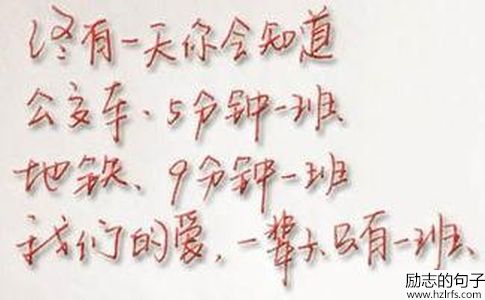 终有一天你会知道
公交车、5分钟一班
地铁、9分钟一班
我们的爱,一辈子只有一班
励志的句子
www.hzlrfs.com